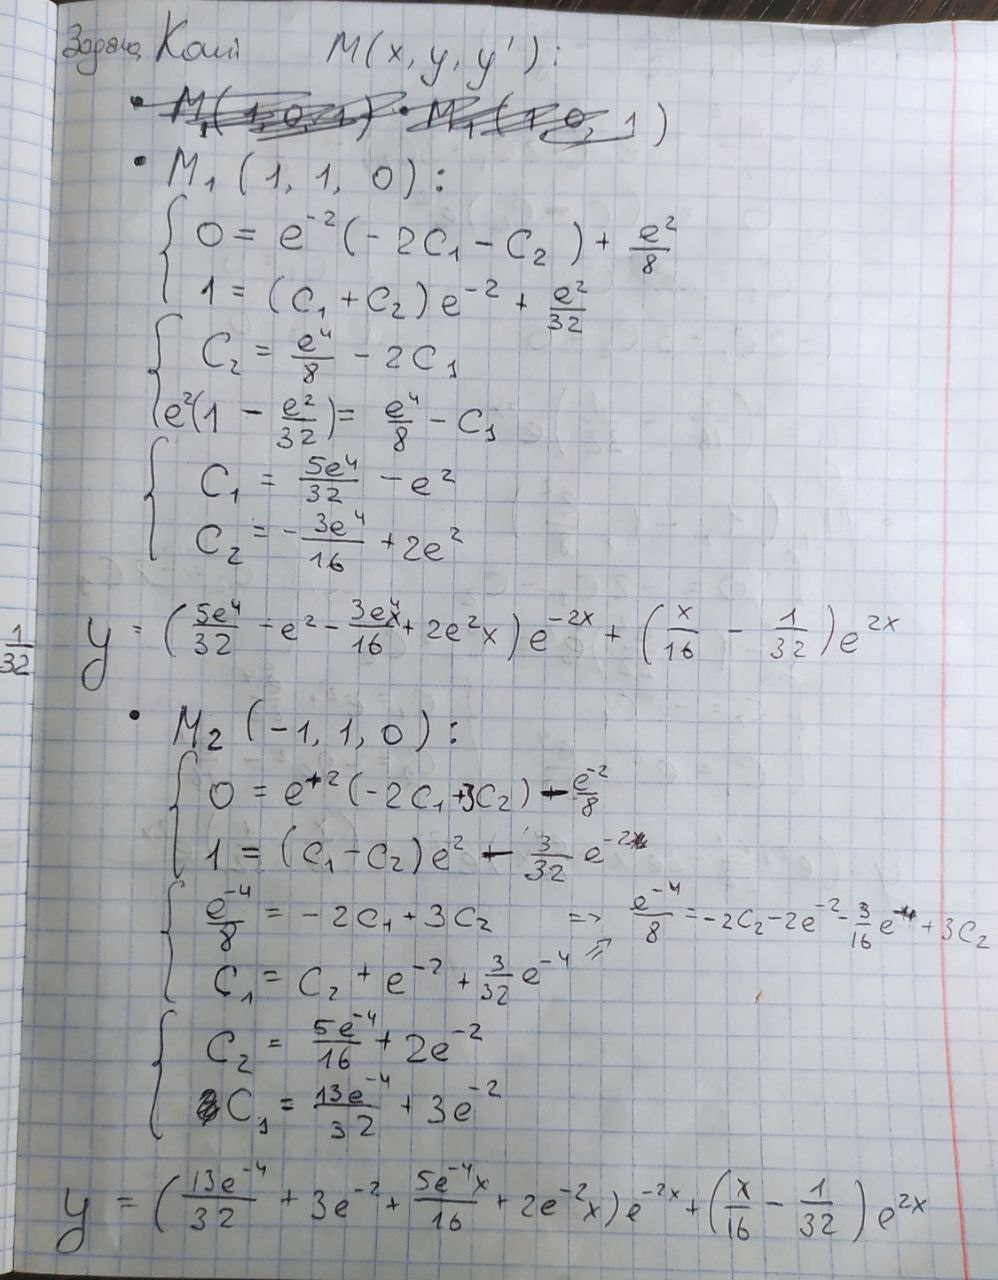 Задача Коші M(x, y, y'):
• M₁(1, 0, 1) • M₁(1, 0, 1)
• M₁ (1, 1, 0):
0 = e⁻² (-2C₁ - C₂) + e²/8
1 = (C₁ + C₂) e⁻² + e²/32
C₂ = e⁴/8 - 2C₁
e²(1 - e²/32) = e⁴/8 - C₁
C₁ = 5e⁴/32 - e²
C₂ = -3e⁴/16 + 2e²
1/32
y = (5e⁴/32 - e² - 3e⁴x/16 + 2e²x) e^(-2x) + (x/16 - 1/32) e^(2x)
• M₂ (-1, 1, 0):
0 = e⁺² (-2C₁ + 3C₂) - e⁻²/8
1 = (C₁ - C₂) e² - 3/32 e⁻²
e⁻⁴/8 = -2C₁ + 3C₂ => e⁻⁴/8 = -2C₂ - 2e⁻² - 3/16 e⁻⁴ + 3C₂
C₁ = C₂ + e⁻² + 3/32 e⁻⁴ ⇒
C₂ = 5e⁻⁴/16 + 2e⁻²
C₁ = 13e⁻⁴/32 + 3e⁻²
y = (13e⁻⁴/32 + 3e⁻² + 5e⁻⁴x/16 + 2e⁻²x) e^(-2x) + (x/16 - 1/32) e^(2x)